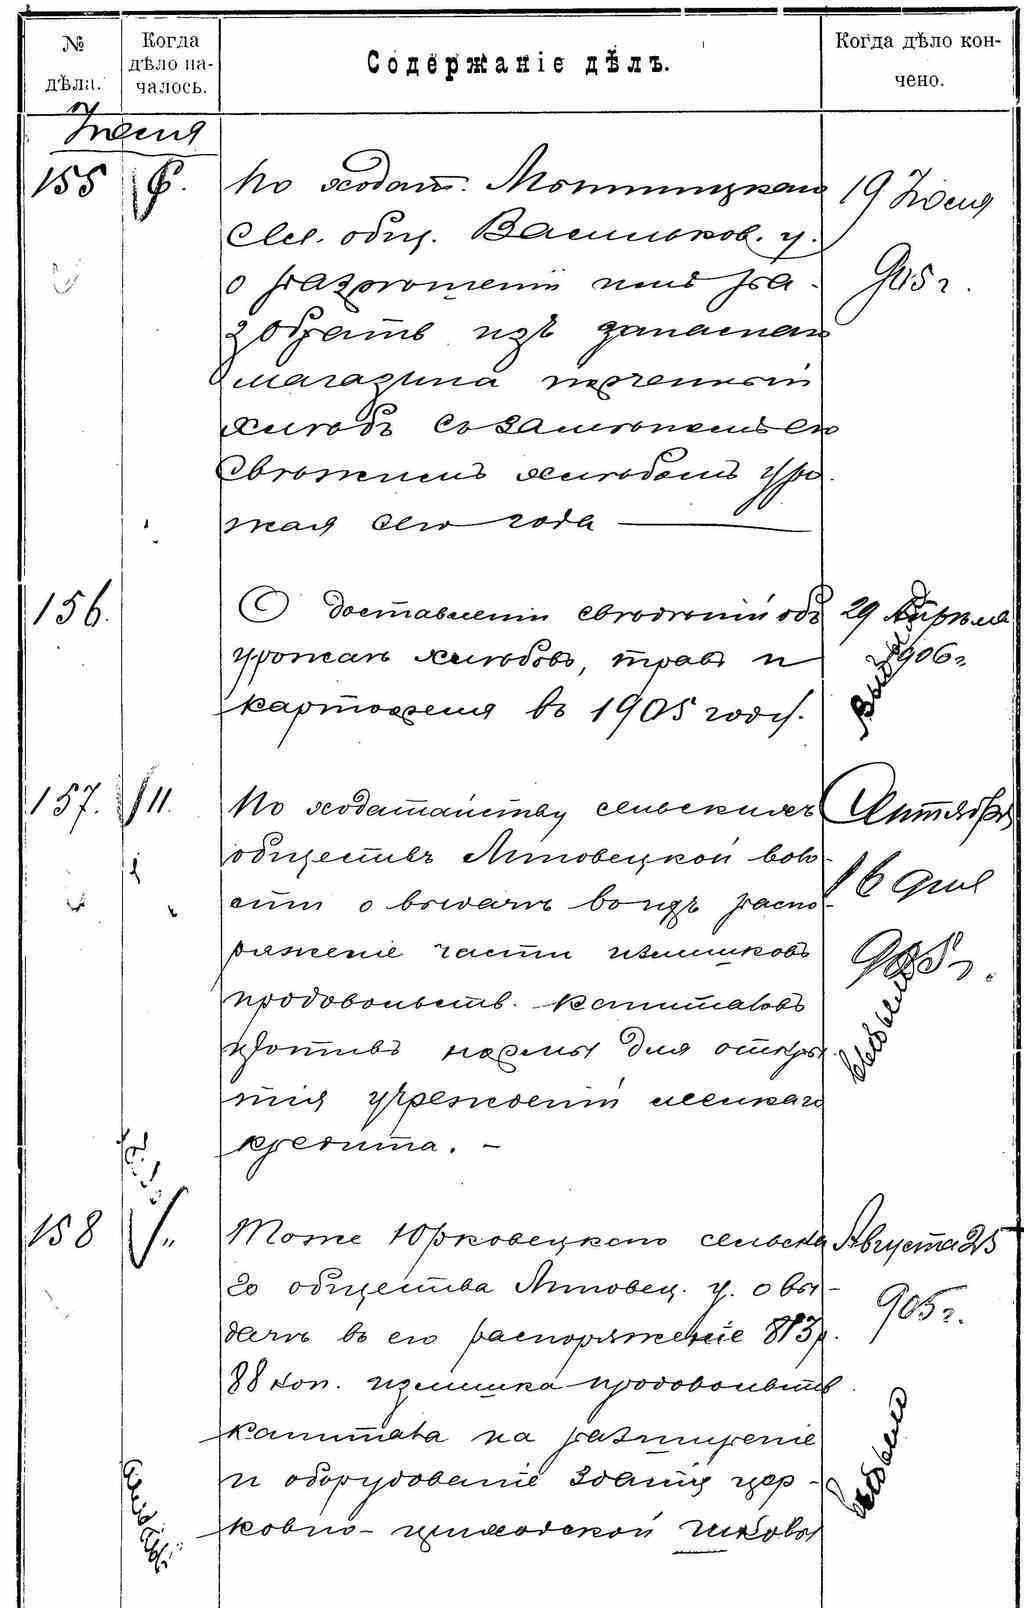 № дѣла.
Когда дѣло на-
чалось.
Содержаніе дѣлъ.
Когда дѣло кон-
чено.
Іюня
155 6.
По ходат. Мотпицкаго
сел. общ. Васильков. у.
о разрѣшеніи имъ ра-
зобрать изъ запаснаго
магазина порченный
хлѣбъ съ замѣною его
свѣжимъ хлѣбомъ уро-
жая сего года
19 Іюля
905 г.
156.
О доставленіи свѣдѣній объ
урожаѣ хлѣбовъ, травъ и
картофеля въ 1905 году.
29 Апрѣля
906 г.
Выбыло
157. 11.
По ходатайству сельскихъ
обществъ Липовецкой воло-
сти о выдачѣ въ ихъ распо-
ряженіе части излишковъ
продовольств. капиталовъ
противъ нормы для откры-
тія учрежденій мелкаго
кредита. –
Октября
16 дня
905 г.
Выбыло
158 "
Тоже Юрковецкаго сельска-
го общества Липовец. у. о вы-
дачѣ въ его распоряженіе 813 р.
88 коп. излишка продовольств.
капитала на расширеніе
и оборудованіе зданія цер-
ковно-приходской школы
Августа 25
905 г.
Выбыло